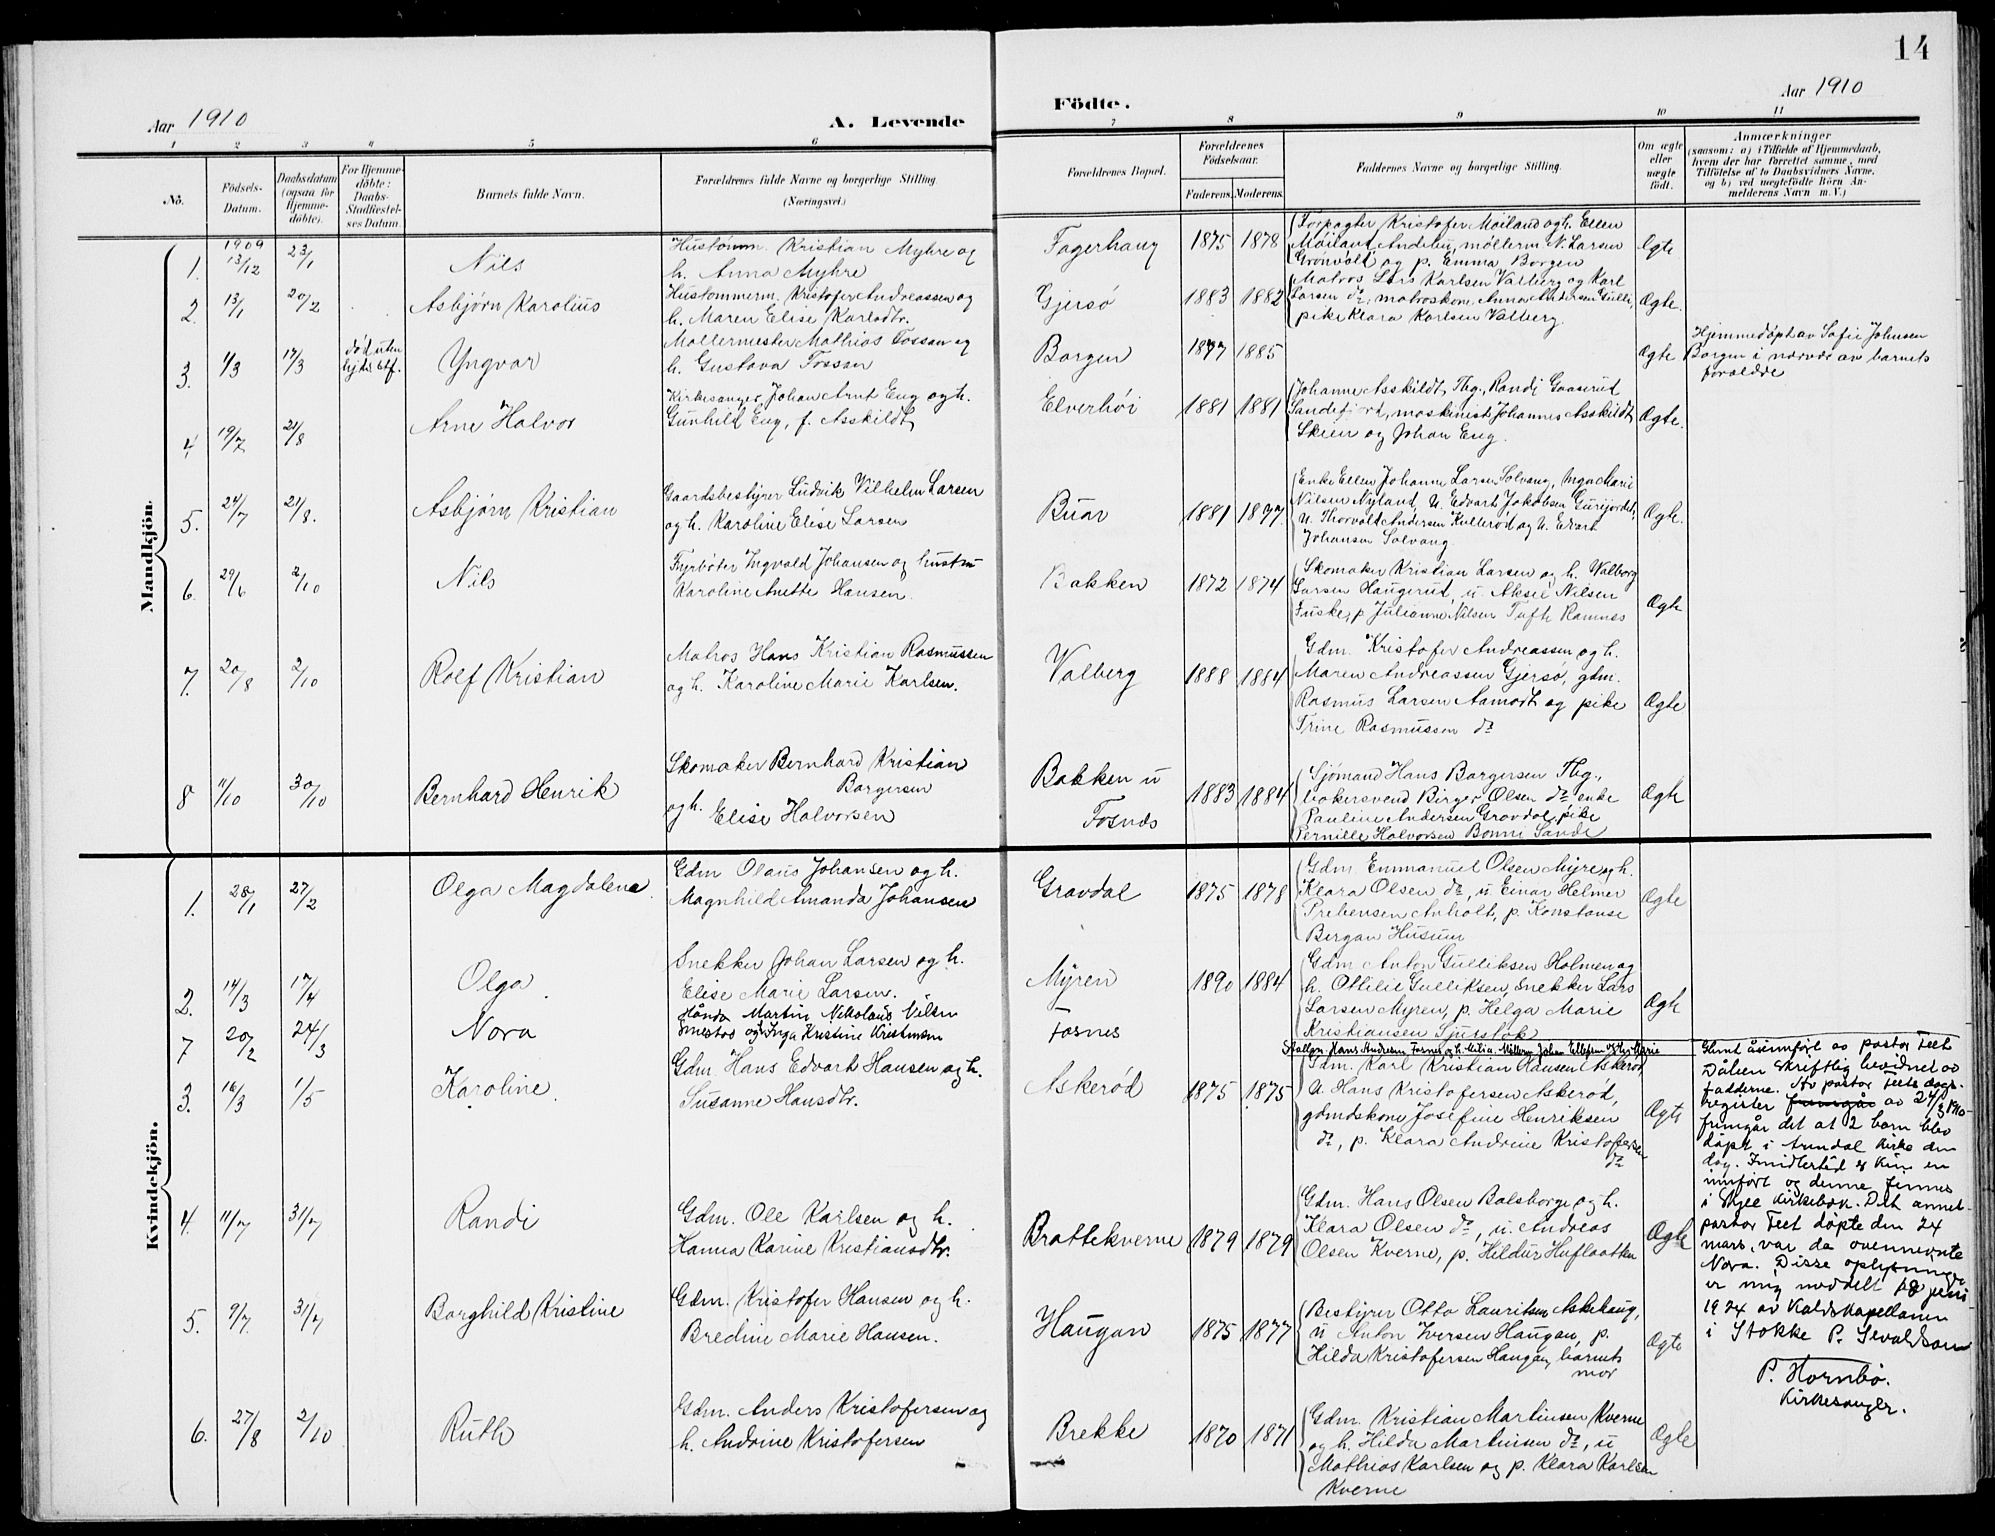 14
Aar 1910
A. Levende
Födte.
Aar 1910
1 2 3 4 5 6 7 8 9 10 11
No.
Födsels-Datum.
Daabsdatum (ogsaa for Hjemme-döbte).
For Hjemme-döbte: Daabs-Stadfæstel-ses Datum.
Barnets fulde Navn.
Forældrenes fulde Navne og borgerlige Stilling.
(Næringsvei.)
Forældrenes Bopæl.
Forældrenes Födselsaar.
Faderens. Moderens.
Faddernes Navne og borgerlige Stilling.
Om ægte eller uægte födt.
Anmærkninger
(saasom: a) i Tilfælde af Hjemmedaab,
hvem der har forrettet samme, med
Tilföielse af to Daabsvidners Navne,
og b) ved uægtefödte Börn An-
melderens Navn m. V.)
Mandkjön.
1. 1909 13/12 23/1 Nils
Hustömm. Kristian Myhre og
h. Anna Myhre
Fagerhaug 1875 1878
Forpagter Kristofer Møiland og h. Ellen
Møiland Andebu, møllerm. N. Larsen
Grønvold og p. Emma Borgen
Ægte
2. 13/1 20/2 Asbjørn Karolius
Hustømmerm. Kristofer Andreassen og
h. Maren Elise Karlsdtr.
Gjersø 1883 1882
Matros Lars Karlsen Valberg og Karl
Larsen do, matroskone Anna Andersen Gulli,
pike Klara Karlsen Valberg
Ægte.
3. 1/3 17/3 død uten kirk. stf. Yngvar
Møllermester Mathias Fossan og
h. Gustava Fossan
Borgen 1877 1885
Ægte
Hjemmedøpt av Sofie Johnsen
Borgen i nærvær av barnets
foreldre
4. 19/7 21/8 Arne Halvor
Kirkesanger Johan Arnt Eng og h.
Gunhild Eng, f. Asskildt
Elverhöi 1881 1881
Johanne Asskildt, Tbg., Randi Gaaserud
Sandefjord, maskinist Johannes Asskildt
Skien og Johan Eng.
Ægte.
5. 24/7 21/8. Asbjørn Kristian
Gaardsbestyrer Ludvik Vilhelm Larsen
og h. Karoline Elise Larsen
Buar 1881 1877
Enke Ellen Johanne Larsen Solvang, Inga Marie
Nilsen Nyland, u. Edvart Jakobsen Gurijordet,
u. Thorvald Andersen Kullerød og u. Edvart
Johansen Solvang
Ægte.
6. 29/6 2/10 Nils
Fyrbøter Ingvald Johansen og hustru
Karoline Anette Hansen.
Bakken 1872 1874
Skomaker Kristian Larsen og h. Valborg
Larsen Haugerud, u. Aksel Nilsen
Fuske, p. Julianne Nilsen Tufte Ramnes
Ægte
7. 20/8 2/10 Rolf Kristian
Matros Hans Kristian Rasmussen
og h. Karoline Marie Karlsen.
Valberg 1888 1884
Gdm. Kristofer Andreassen og h.
Maren Andreassen Gjersø, gdm.
Rasmus Larsen Aamodt og pike
Trine Rasmussen do
Ægte
8 11/10 30/10 Bernhard Henrik
Skomaker Bernhard Kristian
Borgersen
og h. Elise Halvorsen
Bakken u
Fosnæs
1883 1884
Sjömand Hans Borgersen Tbg.,
bakersvend Birger Olsen do enke
Pauline Andersen Gravdal, pike
Pernille Halvorsen Bonni Sande
Ægte
Kvindekjön.
1. 28/1 27/2 Olga Magdalena.
Gdm Olaus Johansen og h.
Magnhild Amanda Johansen
Gravdal 1875 1878
Gdm. Emmanuel Olsen Myre og h.
Klara Olsen do, u. Einar Helmer
Prebensen Anholt, p. Konstanse
Bergan Husum
Ægte
2. 14/3 17/4 Olga.
Snekker Johan Larsen og h.
Elise Marie Larsen.
Myren 1890 1884
Gdm Anton Gulliksen Holmen og
h. Ottilie Gulliksen, snekker Lars
Larsen Myren, p. Helga Marie
Kristiansen Sjuestok
Ægte
7 20/2 24/3 Nora
Martin Nikolaus Nilsen
og h. Inga Kristine Kristensen
Fosnes
3. 16/3 1/5 Karoline.
Gdm. Hans Edvart Hansen og h.
Susanne Hansdtr.
Askerød 1875 1875
Gdm. Karl Kristian Hansen Askerød,
u. Hans Kristofersen Askerød,
gdmdskone Josefine Henriksen
do, p. Klara Andrine Kristofersen
do
Ægte
Glemt å innført av pastor Feet
Dåpen skriftlig bevidnet av
fadderne. Av pastor Feets dags-
register framgår av 24/3 1910
fremgår det at 2 barn blev
døpt i Arendal kirke den
dag. Imidlertid er kun en
innført og denne finnes
i Skjee kirkebok. Det annet
pastor Feet døpte den 24
mars, var da ovennevnte
Nora. Disse oplysninger
er mig meddelt 18 juni
1924 av Kaldskapellanen
i Stokke P. Sevaldson
P. Hornbo.
Kirkesanger.
4. 11/7 31/7 Randi
Gdm. Ole Karlsen og h.
Hanna Karine Kristiansdtr.
Brattekverne 1879 1879
Gdm. Hans Olsen Balsborge og h.
Klara Olsen do, u. Andreas
Olsen Kverne, p. Hildur Huflaatten
Ægte
5. 9/7. 31/7 Borghild Kristine
Gdm. Kristofer Hansen og h.
Bredine Marie Hansen.
Haugan 1875 1877
Bestyrer Otto Lauritsen Askehaug,
u Anton Iversen Haugan, p.
Hilda Kristofersen Haugan, barnets
mor
Ægte
6. 27/8 2/10 Ruth
Gdm. Anders Kristofersen og
h. Andrine Kristofersen
Brekke 1870 1871
Gdm. Kristian Martinsen Kverne
og h. Hilda Martinsen do, u
Mathias Karlsen og p. Klara Karlsen
Kverne
Ægte